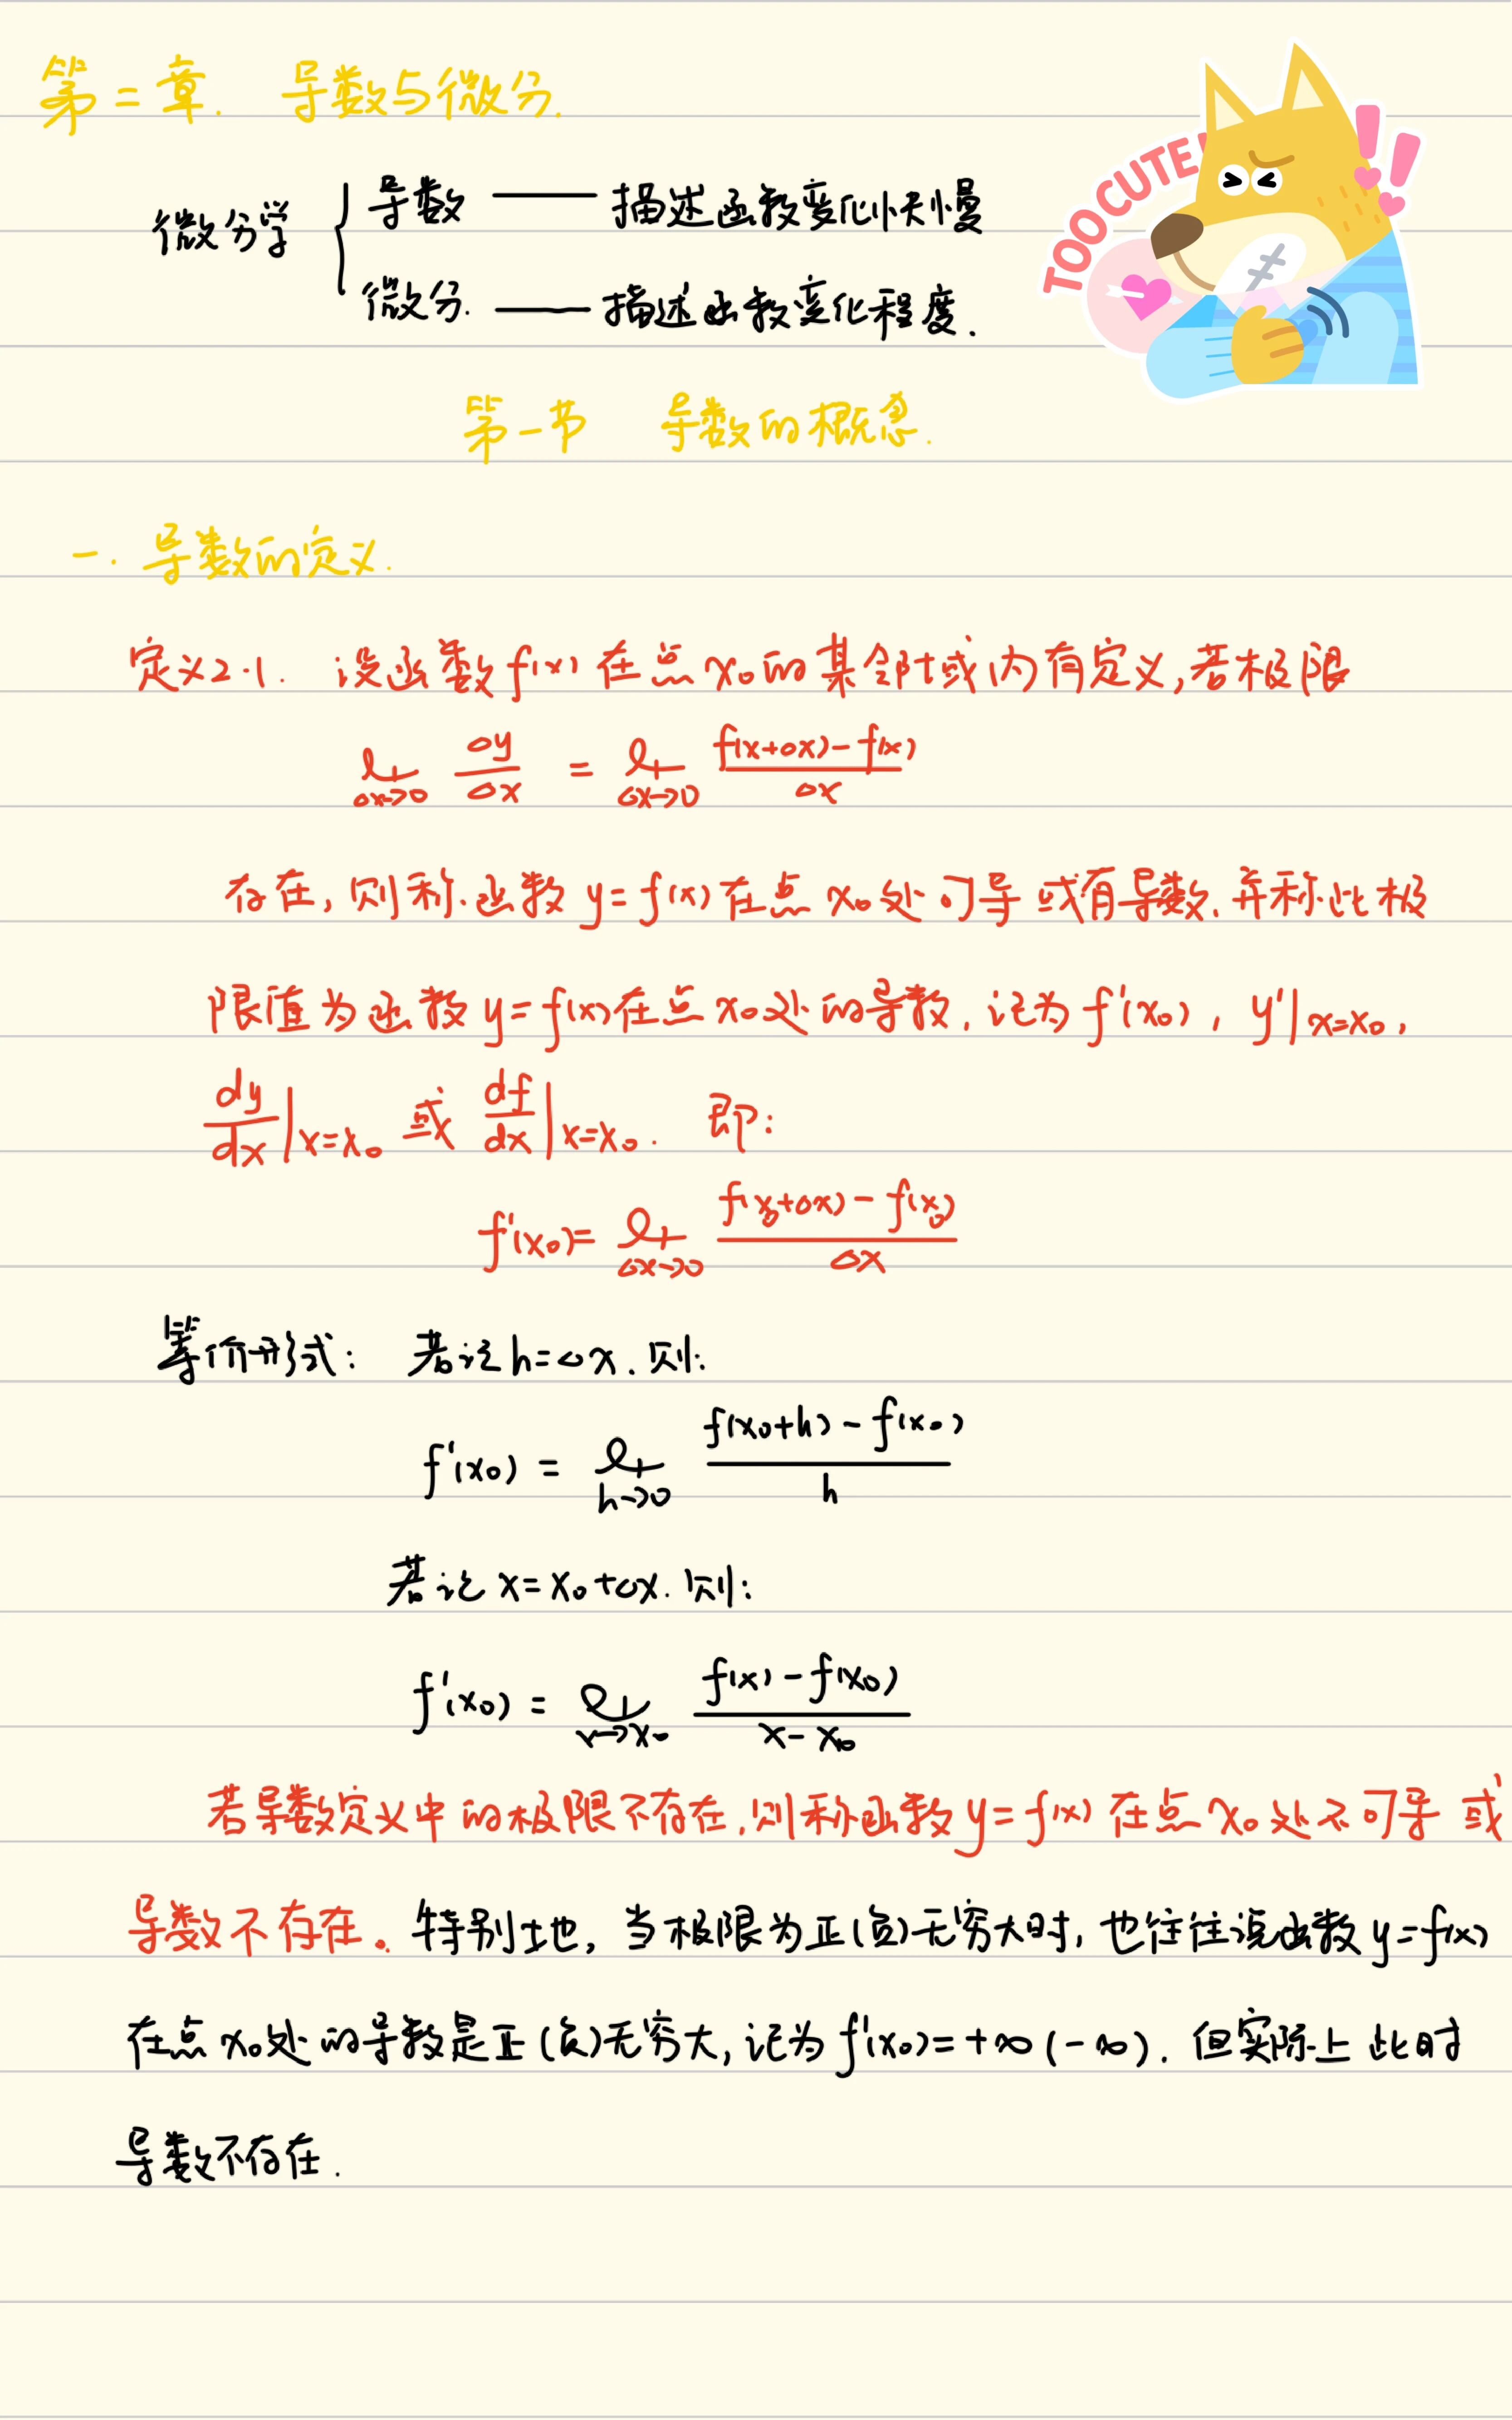 第二章. 导数与微分.
TOO CUTE!
微分学 { 导数 —— 描述函数变化快慢
微分. —— 描述函数变化程度.
第一节 导数的概念.
一. 导数的定义.
定义2.1. 设函数f(x)在点x₀的某邻域内有定义,若极限
lim_{Δx→0} Δy/Δx = lim_{Δx→0} (f(x+Δx)-f(x))/Δx
存在,则称函数y=f(x)在点x₀处可导或有导数.并称此极
限值为函数y=f(x)在点x₀处的导数,记为f'(x₀), y'|x=x₀,
dy/dx|x=x₀ 或 df/dx|x=x₀. 即:
f'(x₀)= lim_{Δx→0} (f(x₀+Δx)-f(x₀))/Δx
等价形式: 若记h=Δx.则:
f'(x₀) = lim_{h→0} (f(x₀+h)-f(x₀))/h
若记x=x₀+Δx.则:
f'(x₀) = lim_{x→x₀} (f(x)-f(x₀))/(x-x₀)
若导数定义中的极限不存在,则称函数y=f(x)在点x₀处不可导或
导数不存在。特别地,当极限为正(负)无穷大时,也往往说函数y=f(x)
在点x₀处的导数是正(负)无穷大,记为f'(x₀)=+∞(-∞).但实际上此时
导数不存在.